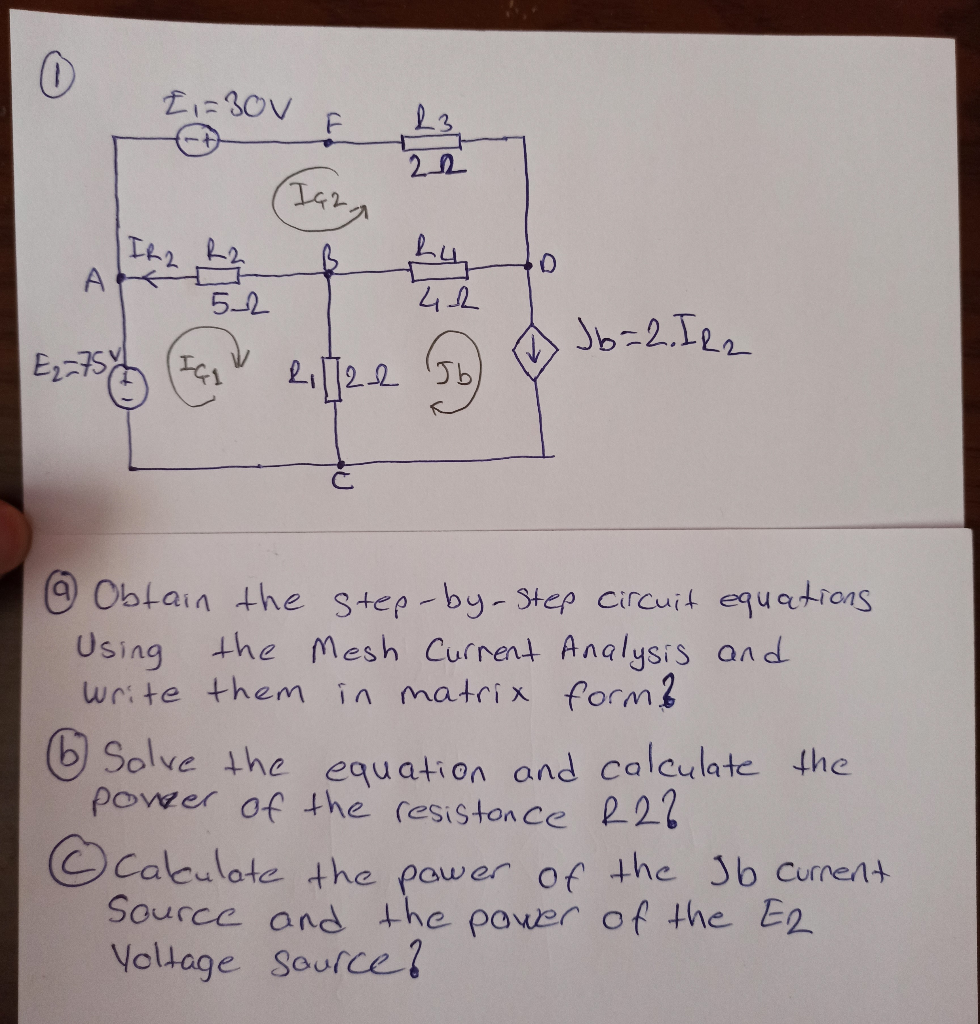 ①
E₁=30V
- +
F
R3
2Ω
IG2
IR2
R2
B
R4
A
D
5Ω
4Ω
E2=75V
+
-
IG1
R1
2Ω
Jb
Jb=2.IR2
C
ⓐ Obtain the step-by-step circuit equations
Using the Mesh Current Analysis and
write them in matrix form?
ⓑ Solve the equation and calculate the
power of the resistance R2?
ⓒ Calculate the power of the Jb current
Source and the power of the E2
Voltage source?